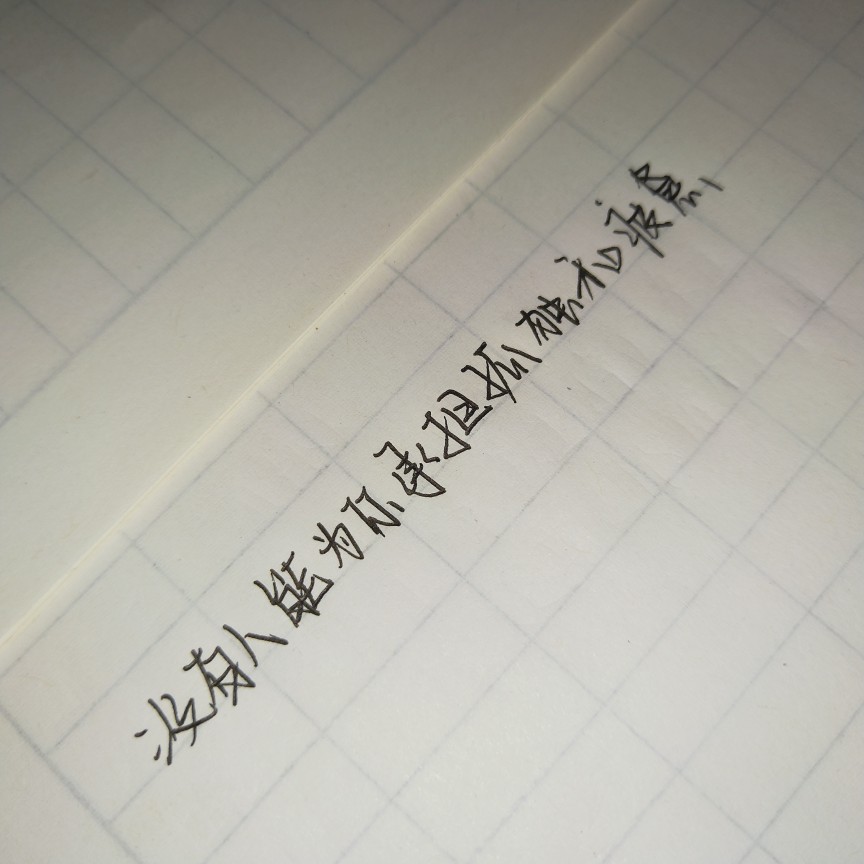 没有人能为你承担孤独和疲惫